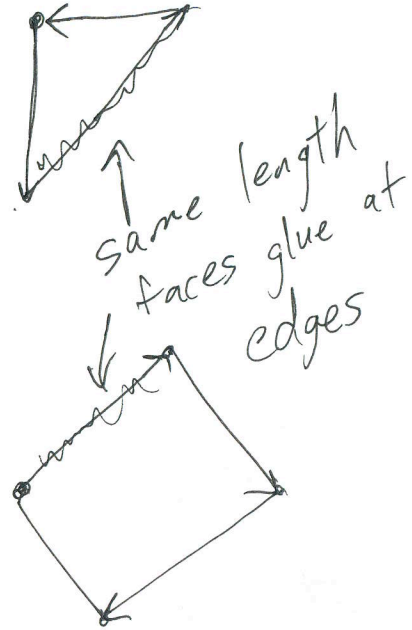 same length
faces glue at
edges